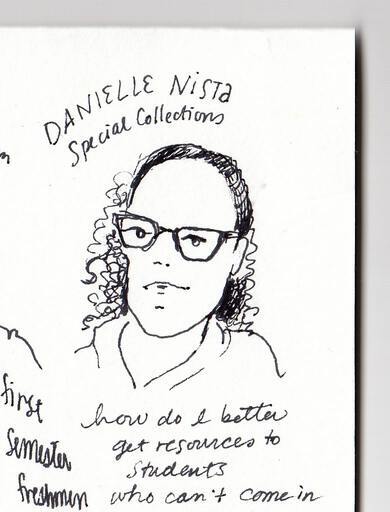 DANIELLE NISTA
Special Collections
first
semester
freshmen
how do I better
get resources to
students
who can't come in